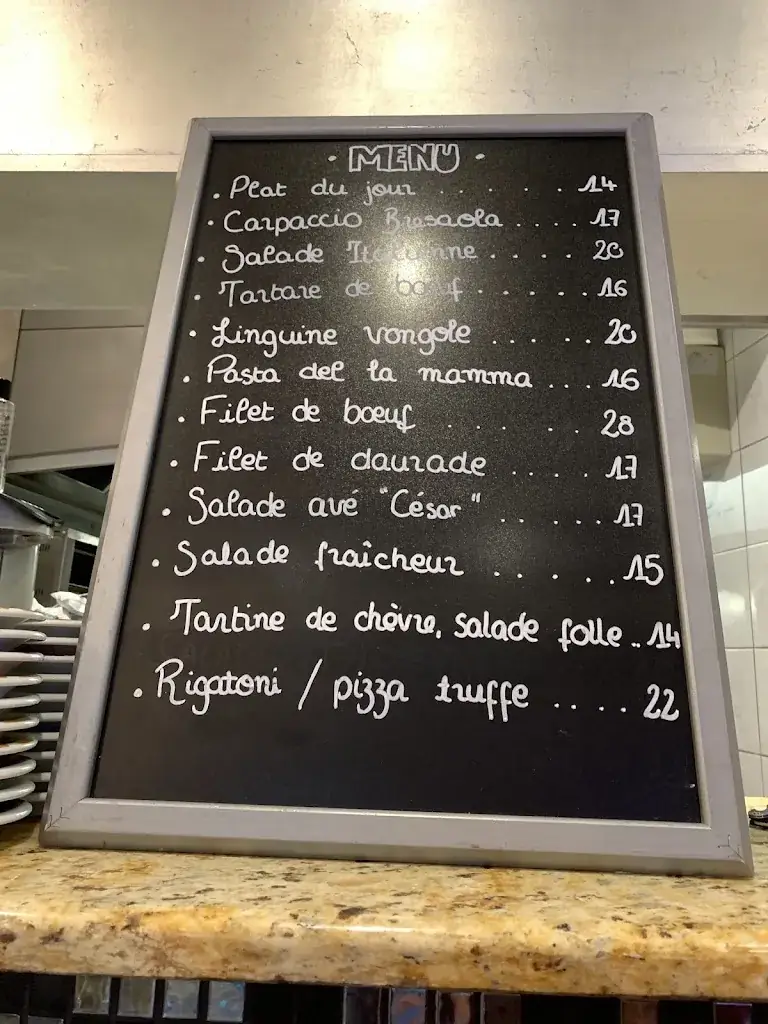 · MENU ·
. Plat du jour . . . . . . 14
. Carpaccio Bresaola . . . . 17
. Salade Italienne . . . . . 20
. Tartare de bœuf . . . . . 16
. Linguine vongole . . . . . . 20
. Pasta del la mamma . . . 16
. Filet de bœuf . . . . . . 28
. Filet de daurade . . . . . 17
. Salade avé "César" . . . . . . 17
. Salade fraîcheur . . . . . . 15
. Tartine de chèvre, salade folle .. 14
. Rigatoni / pizza truffe . . . . 22